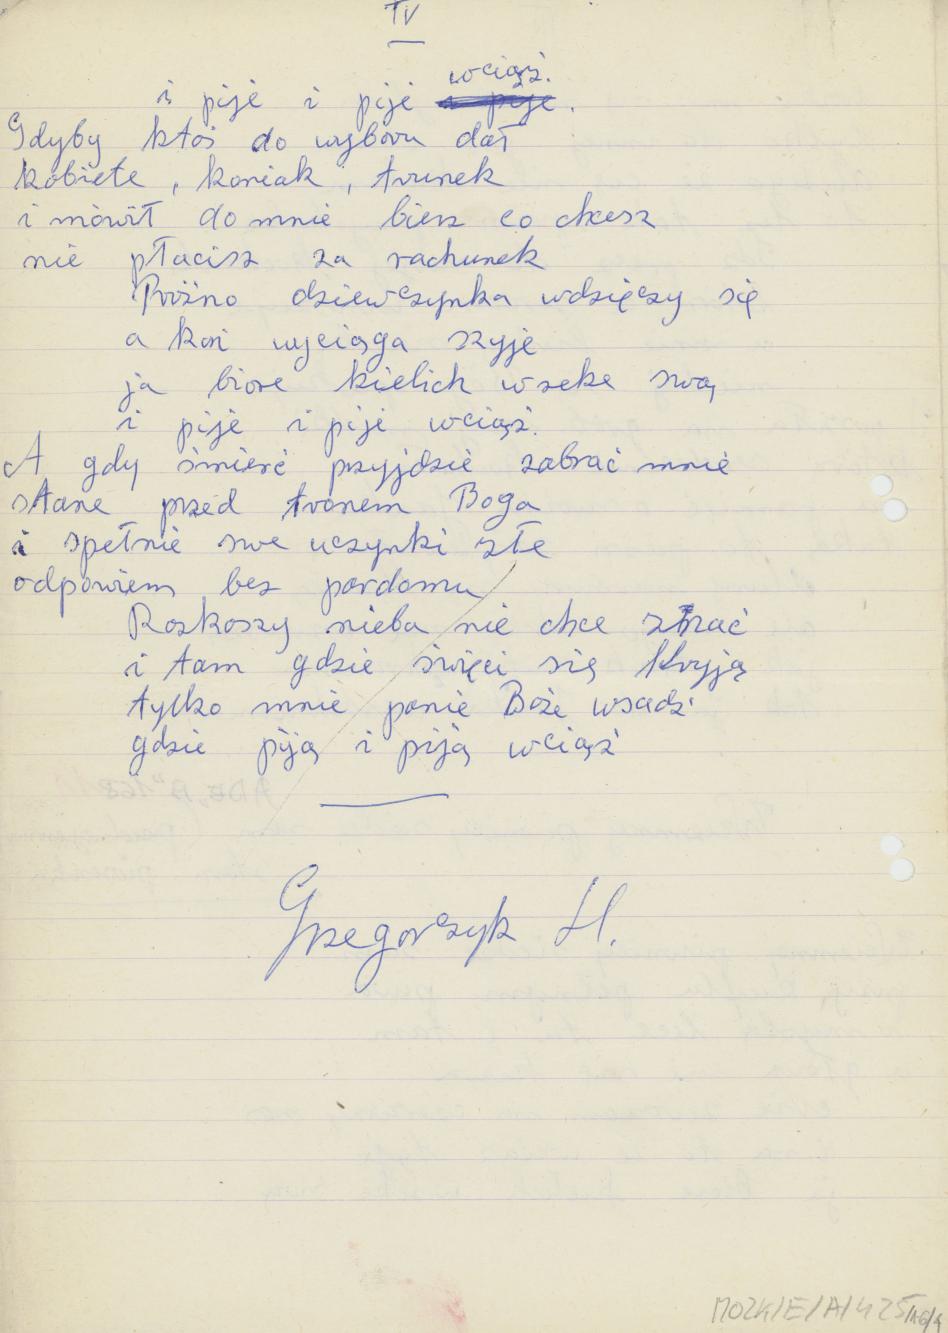 IV
i pije i pije wciąż.
Gdyby ktoś do wyboru dał
kobiete, koniak, trunek
i mówił do mnie bierz co chcesz
nie płacisz za rachunek
Próżno dziewczynka wdzięczy się
a koń wyciąga szyje
ja biore kielich w reke swą
i pije i pije wciąż.
A gdy śmierć przyjdzie zabrać mnie
stane przed tronem Boga
i spełnie swe uczynki złe
odpowiem bez pardonu
Rozkoszy nieba nie chce znać
i tam gdzie święci się kryją
tylko mnie panie Boże wsadź
gdzie piją i piją wciąż
Grzegorczyk H.
MOZK/E/A/425/